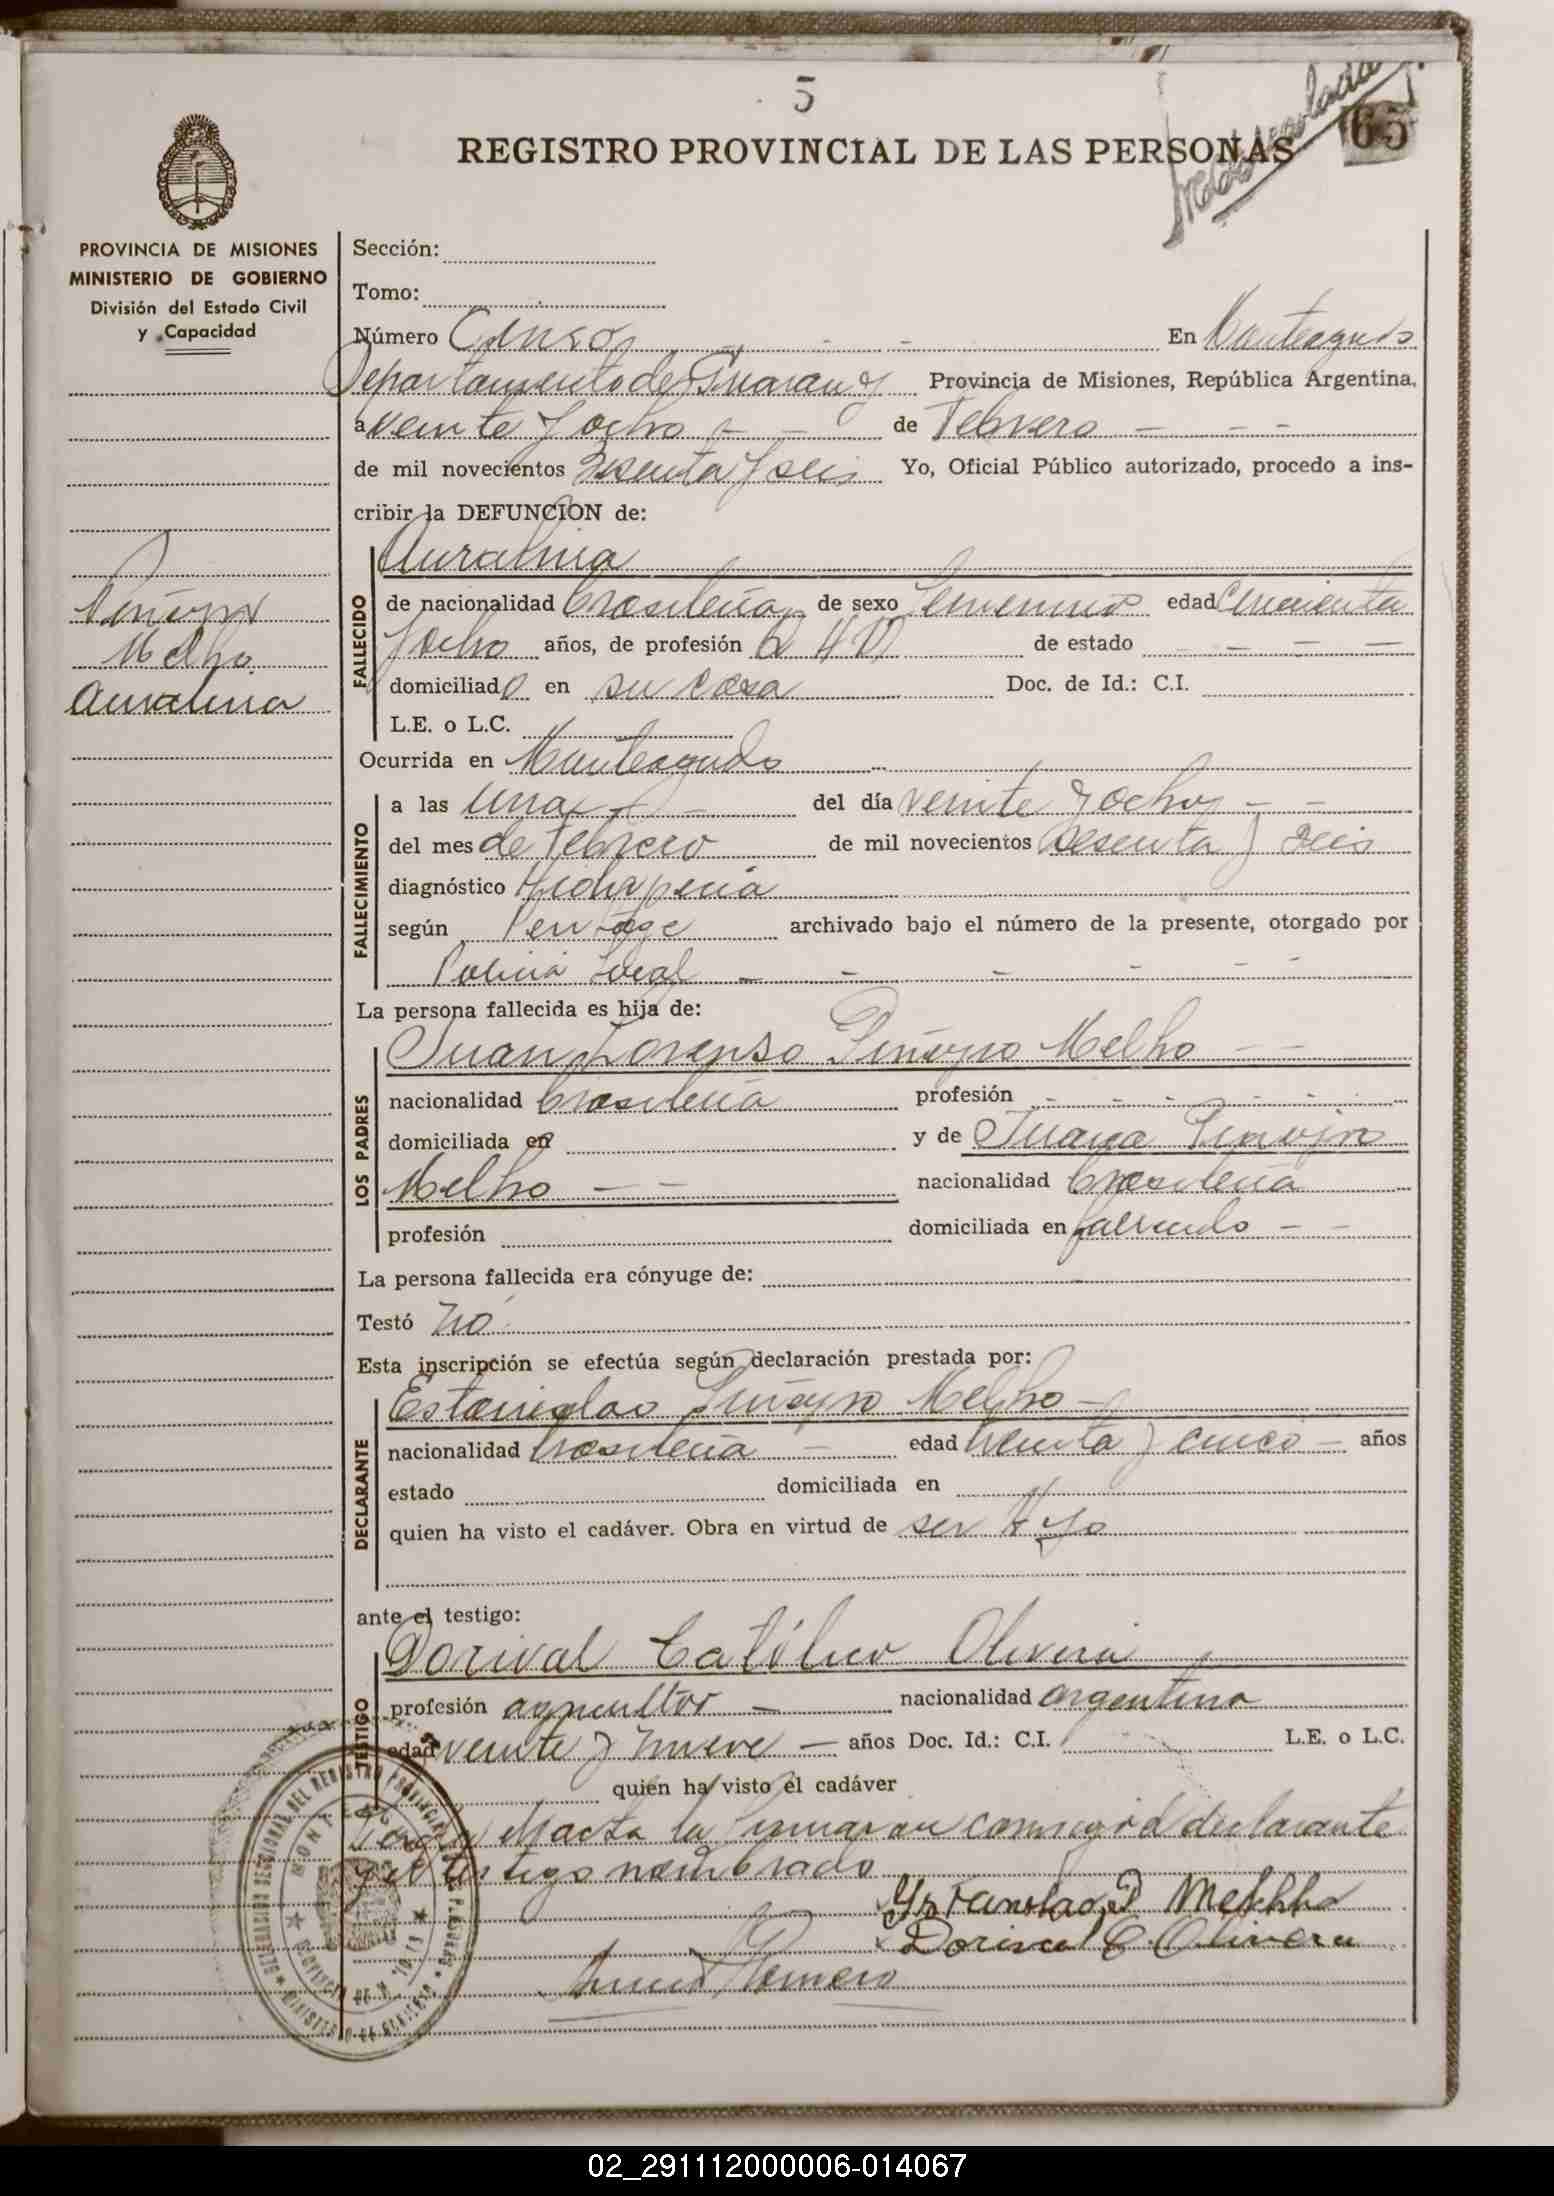 5
65
REGISTRO PROVINCIAL DE LAS PERSONAS
PROVINCIA DE MISIONES
MINISTERIO DE GOBIERNO
División del Estado Civil
y Capacidad
Melho
Auralina
Sección:
Tomo:
Número Cinco En Monteagudo
Departamento de Guarany Provincia de Misiones, República Argentina,
a veinte y ocho de Febrero
de mil novecientos Sesenta y seis Yo, Oficial Público autorizado, procedo a ins-
cribir la DEFUNCION de:
FALLECIDO
Auralina
de nacionalidad brasileña de sexo Femenino edad Cincuenta
y ocho años, de profesión de estado
domiciliado en su casa Doc. de Id.: C.I.
L.E. o L.C.
Ocurrida en Monteagudo
FALLECIMIENTO
a las una del día veinte y ocho
del mes de Febrero de mil novecientos sesenta y seis
diagnóstico
según archivado bajo el número de la presente, otorgado por
Policia Local
La persona fallecida es hija de:
LOS PADRES
Juan Lorenso Piñeyro Melho
nacionalidad brasileña profesión
domiciliada en y de Juana Pinoyro
Melho nacionalidad brasileña
profesión domiciliada en
La persona fallecida era cónyuge de:
Testó no
Esta inscripción se efectúa según declaración prestada por:
DECLARANTE
Estanislao Piñeyro Melho
nacionalidad brasileña edad treinta y cinco años
estado domiciliada en
quien ha visto el cadáver. Obra en virtud de ser Hijo
ante el testigo:
TESTIGO
Dorival Católico Olivera
profesión agricultor nacionalidad argentina
edad veinte y nueve años Doc. Id.: C.I. L.E. o L.C.
quien ha visto el cadáver
Leida el acta la firmaron conmigo el declarante
y el testigo nombrado
Melhho
Dorival C. Olivera
Romero
02_291112000006-014067